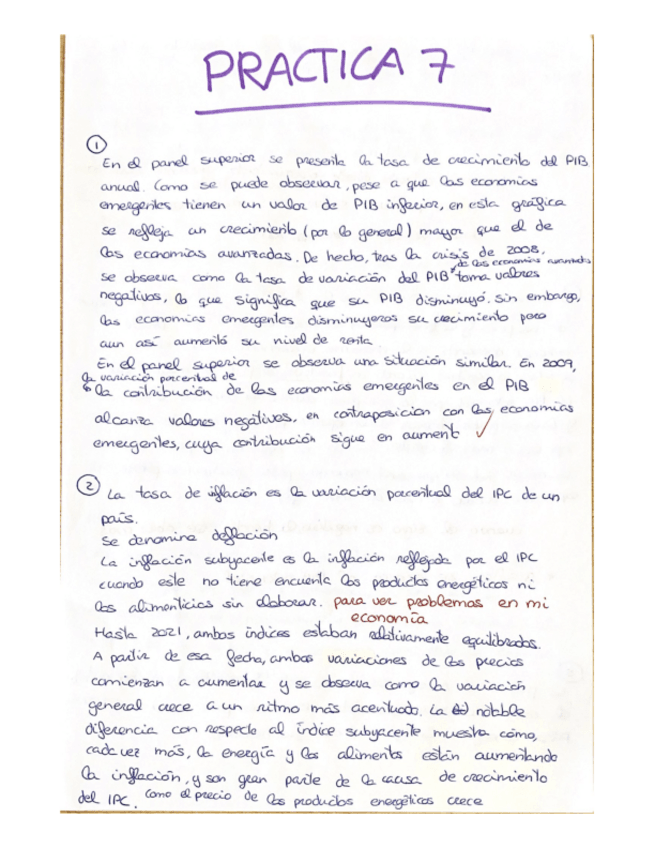 PRACTICA 7
1
En el panel superior se presenta la tasa de crecimiento del PIB
anual. Como se puede observar, pese a que las economías
emergentes tienen un valor de PIB inferior, en esta gráfica
se refleja un crecimiento (por lo general) mayor que el de
las economías avanzadas. De hecho, tras la crisis de 2008,
de las economías avanzadas
se observa como la tasa de variación del PIB toma valores
negativos, lo que significa que su PIB disminuyó. Sin embargo,
las economías emergentes disminuyeron su crecimiento pero
aun así aumentó su nivel de renta.
En el panel superior se observa una situación similar. En 2009,
la variación porcentual de
la contribución de las economías emergentes en el PIB
alcanza valores negativos, en contraposición con las economías
emergentes, cuya contribución sigue en aument
2
La tasa de inflación es la variación porcentual del IPC de un
país.
Se denomina deflación
La inflación subyacente es la inflación reflejada por el IPC
cuando este no tiene encuenta los productos energéticos ni
los alimenticios sin elaborar. para ver problemas en mi
economía
Hasta 2021, ambos índices estaban relativamente equilibrados.
A partir de esa fecha, ambas variaciones de los precios
comienzan a aumentar y se observa como la variación
general crece a un ritmo más acentuado. La notable
diferencia con respecto al índice subyacente muestra cómo,
cada vez más, la energía y los alimentos están aumentando
la inflación, y son gran parte de la causa de crecimiento
del IPC. Como el precio de los productos energéticos crece